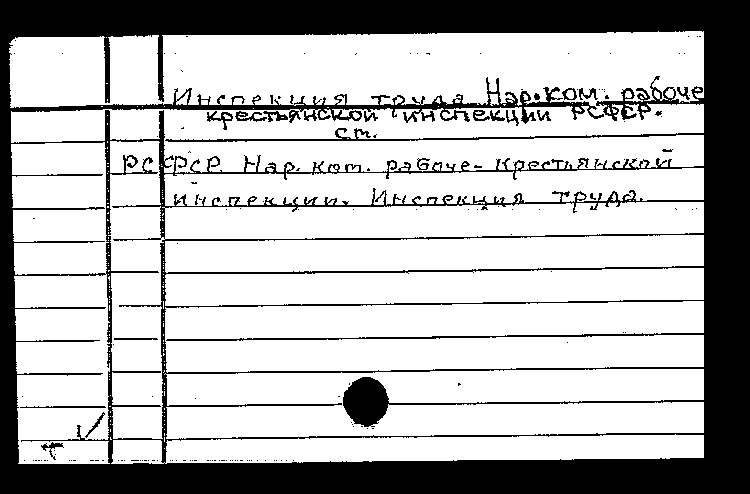 Инспекция труда Нар.ком. рабоче
крестьянской инспекции РСФСР.
см.
РСФСР Нар. ком. рабоче-крестьянской
инспекции. Инспекция труда.